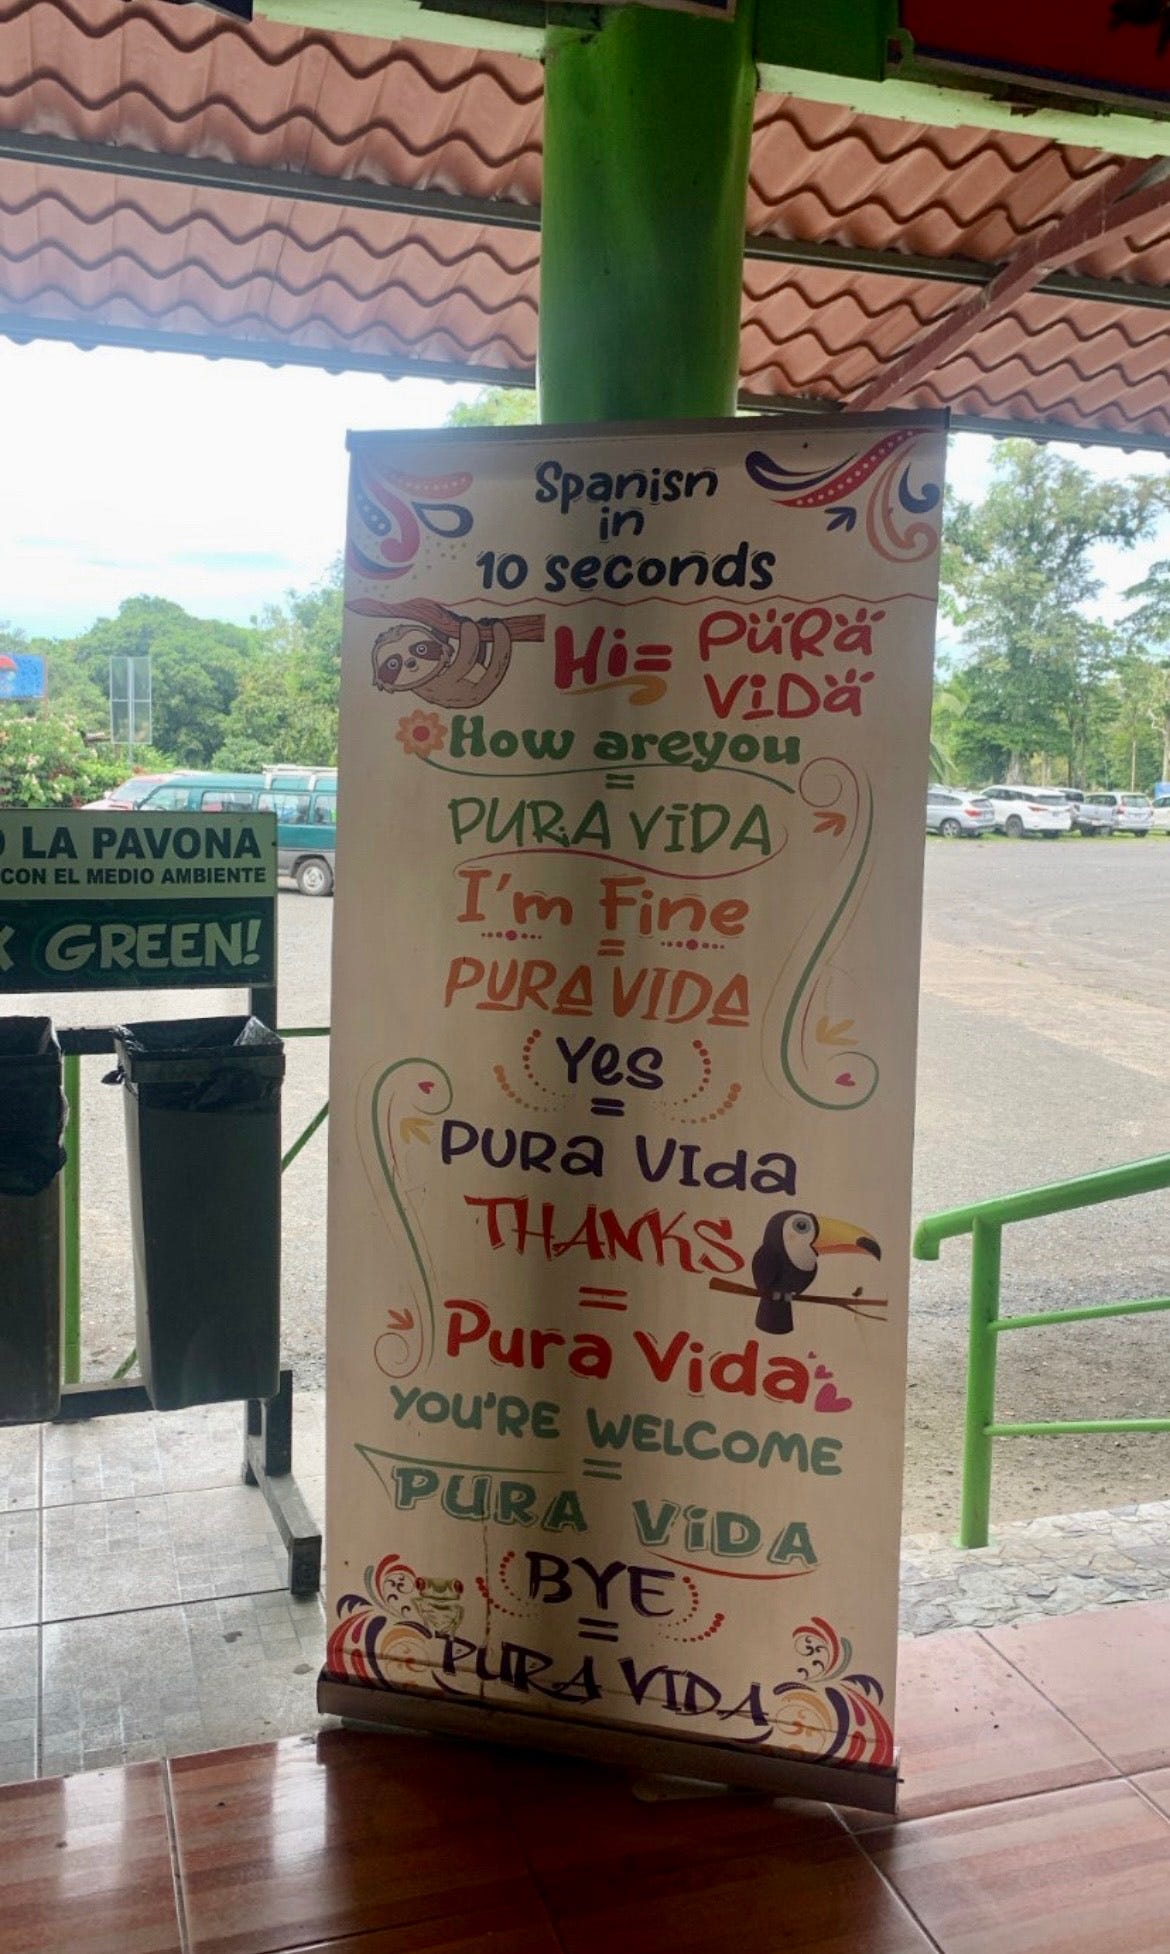 Spanisn
in
10 seconds
Hi= PURA
VIDA
How areyou
=
PURA VIDA
I'm Fine
=
PURA VIDA
Yes
=
PURa VIda
THANKS
=
Pura Vida
YOU'RE WELCOME
=
PURA VIDA
BYE
=
PURA VIDA
LA PAVONA
CON EL MEDIO AMBIENTE
GREEN!